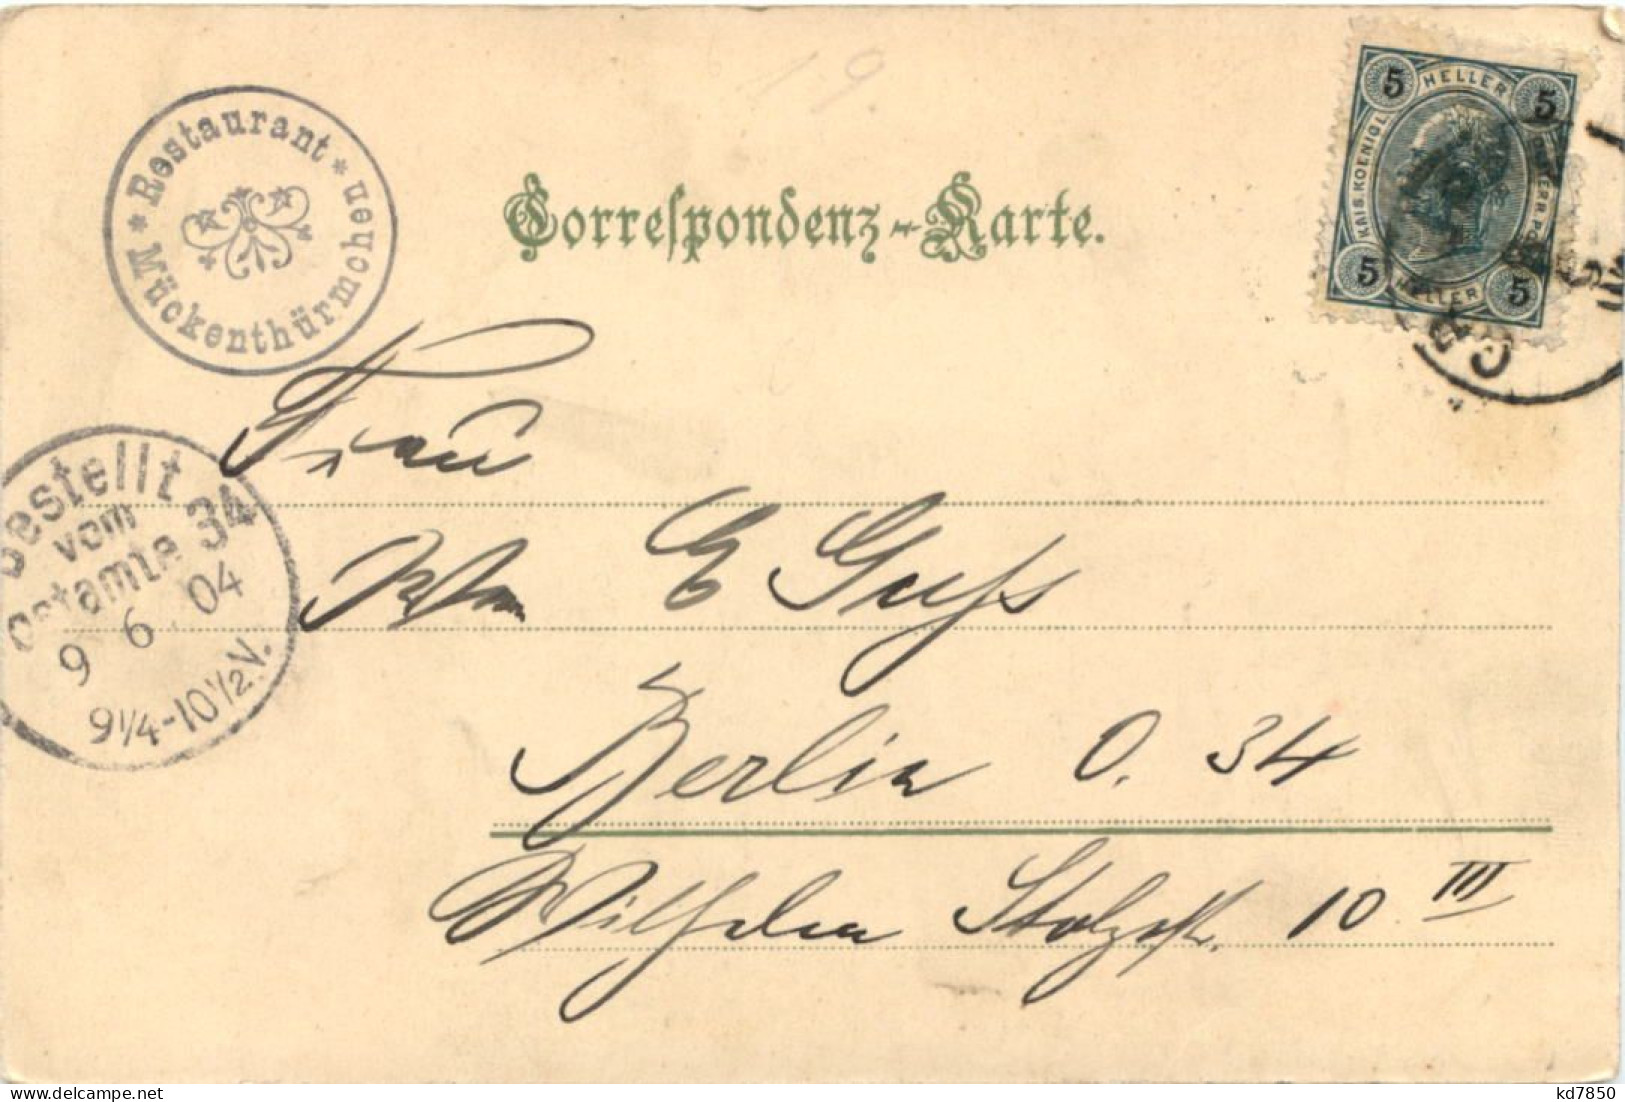 19.
* Restaurant *
Mückenthürmchen
Correspondenz-Karte.
5 HELLER 5
KAIS. KOENIGL.
5 HELLER 5
Frau
Wwe E Guss
Berlin O. 34
Wilhelm Stolzestr. 10 III
Bestellt
vom
Postamte 34
9 6 04
9¼-10½V.
kd7850